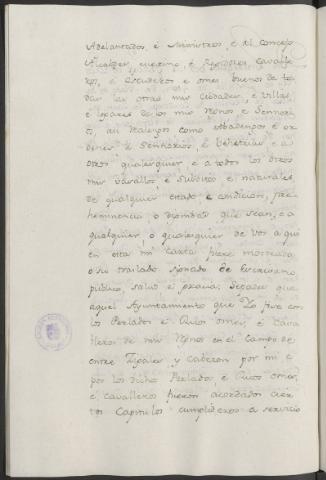 Adelantados, é Ministros, é al Concejo
Alcaldes, é Regidores, cavalle
ros, é Escuderos e omes buenos de to
das las otras mis ciudades, é villas,
é lugares de los mis Reynos é Sennori
os, asi Realengos como Abadengos é or
denes é Behetrias é a
otros qualesquier, é a todos los otros
mis vasallos é subditos é naturales
de qualquier estado e condicion, pre
heminencia, o dignidad que sean, é a
qualquier, o qualesquier de vos a qui
en esta mi Carta fuere mostrada,
o su traslado signado de Escrivano
publico, salud é gracia: Sepades que
aquel Ayuntamiento que Yo fize con
los Perlados é Ricos omes, é Cava
lleros de mis Reynos en el Campo de
entre Zigales é Cabezon por mi e
por los dichos Perlados, é Ricos omes,
e cavalleros fueron acordados cier
tos Capitulos cumplideros a servicio